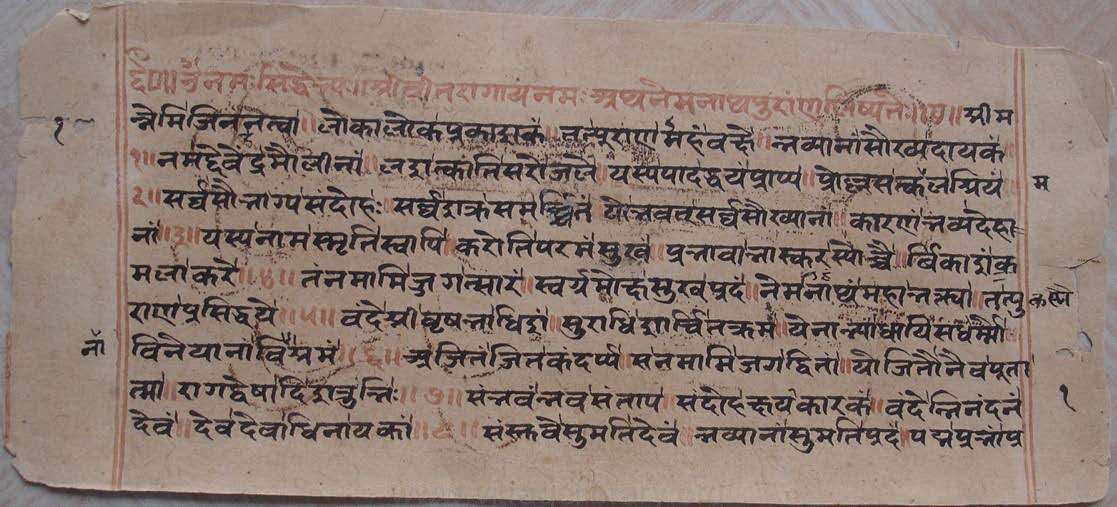 ॥ नमः सिद्धेभ्यः॥ श्रीवीतरागाय नमः अथ नेमनाथपुराण लिष्यते॥ ॥ श्रीम
न्नेमिजिनं नत्वा॥ लोकालोकप्रकाशकं॥ तत्पुराणमहं वक्ष्ये॥ भव्यानां सौरव्यदायकं
१॥ नमद्देवेंद्रमौलीनां॥ लशत्कांतिसरोजले॥ यस्यपादद्वयं प्राप्य॥ प्रोल्लसत्कजश्रियं
२॥ सर्व्वसौभाग्यसंदोहः॥ सर्व्वशक्रसमर्च्चितं योभवत्सर्व्वसौख्यानां॥ कारणं भव्यदेहि
नां॥३॥ यस्यनामस्मृतिस्वापि॥ करोतिपरमंसुखं॥ प्रभावाभास्करस्योच्चै॥ र्विकाशं क
मलाकरे॥४॥ तं नमामि जगत्सारं॥ स्वर्गमोक्षसुखप्रदं॥ नेमिनाथं महाभक्त्या॥ तत्पु
राणप्रसिद्धये॥५॥ वंदे श्रीवृषभाधिशं॥ सुराधिशार्च्चितक्रमं॥ येनाभ्याधायि सधर्म्मो
विनेयानां वि श्रमं॥६॥ अजितं जितकंदर्प्पं॥ सनमामि जगद्धितं॥ यो जितो नैव पूता
त्मा॥ रागद्वेषादिशत्रुभिः॥७॥ संभवं भवसंताप॥ संदोहक्षयकारकं॥ वंदेभिनंदनं
देवं॥ देवदेवाधिनायकं॥८॥ संस्तुवे सुमतिदेवं॥ भव्यानां सुमतिप्रदं पद्मप्रभं प्र
१